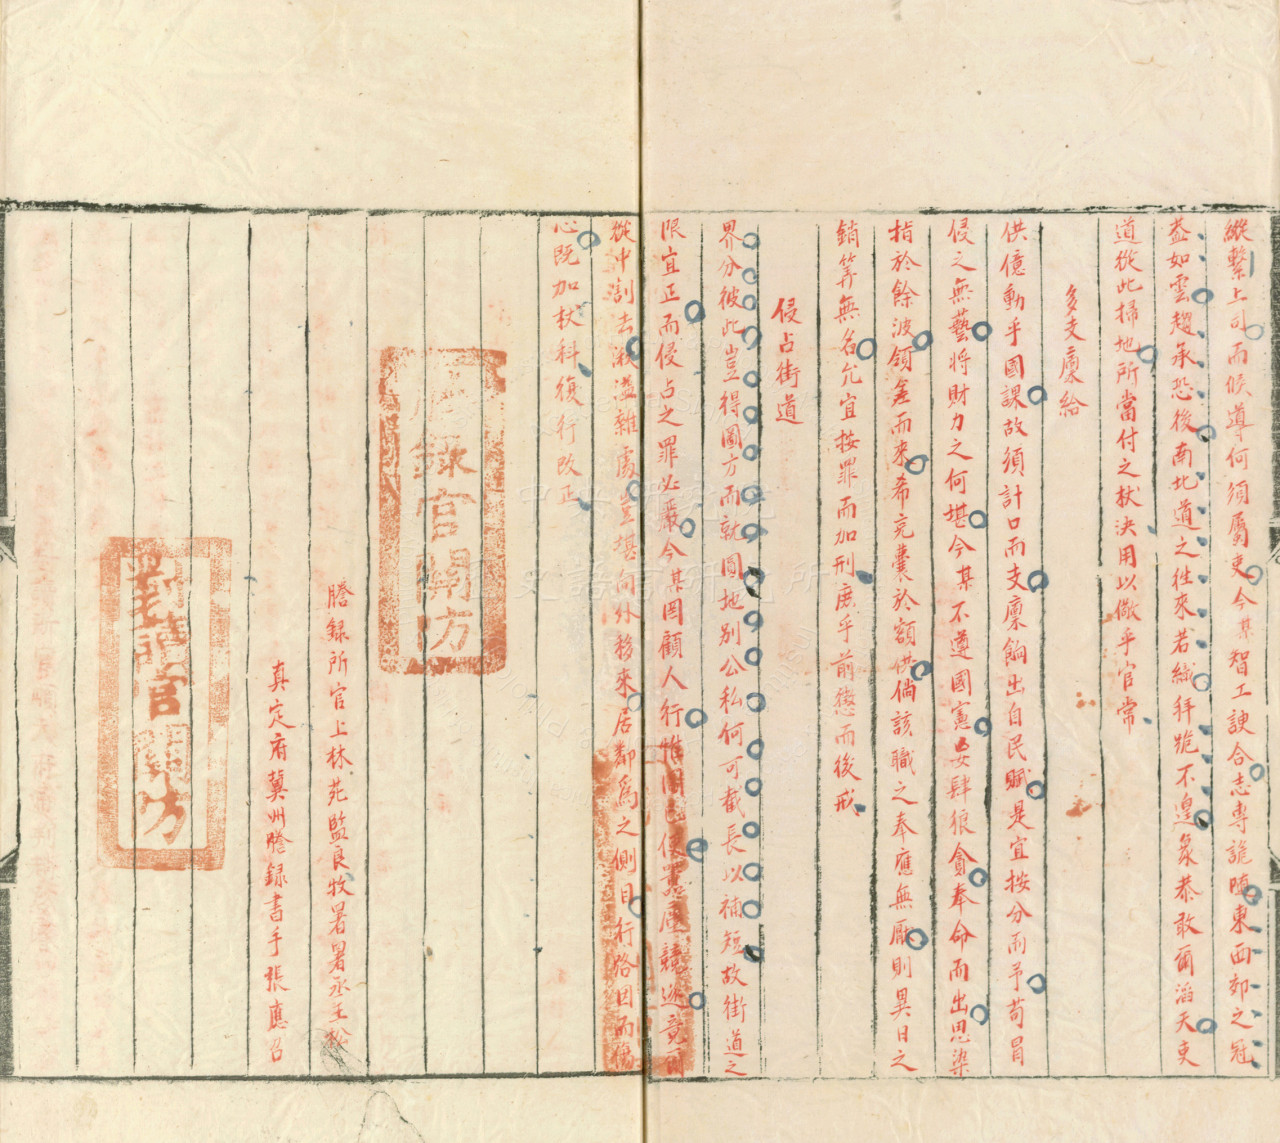 縱繫上司而候導何須屬吏今某智工諛合志專詭隨東西郊之冠
蓋如雲趨承恐後南北道之往來若織拜跪不遑象恭敢爾滔天吏
道從此掃地所當付之杖決用以儆乎官常
多支廩給
供億動乎國課故須計口而支廩餉出自民賦是宜按分而予苟冒
侵之無藝將財力之何堪今某不遵國憲妄肆狼貪奉命而出思染
指於餘波領差而來希充囊於額供倘該職之奉應無厭則異日之
銷筭無名允宜按罪而加刑庶乎前懲而後戒
侵占街道
界分彼此豈得圖方而就圓地別公私何可截長以補短故街道之
限宜正而侵占之罪必嚴今某罔顧人行惟圖己便置屋競逐竟爾
從中割去湫溢雜處豈堪向外移來居鄰為之側目行路因而傷
心既加杖科復行改正
謄錄官關防
謄録所官上林苑監良牧署署丞王松
真定府冀州謄録書手張應召
對讀官關防
中央研究院
史語言研究所